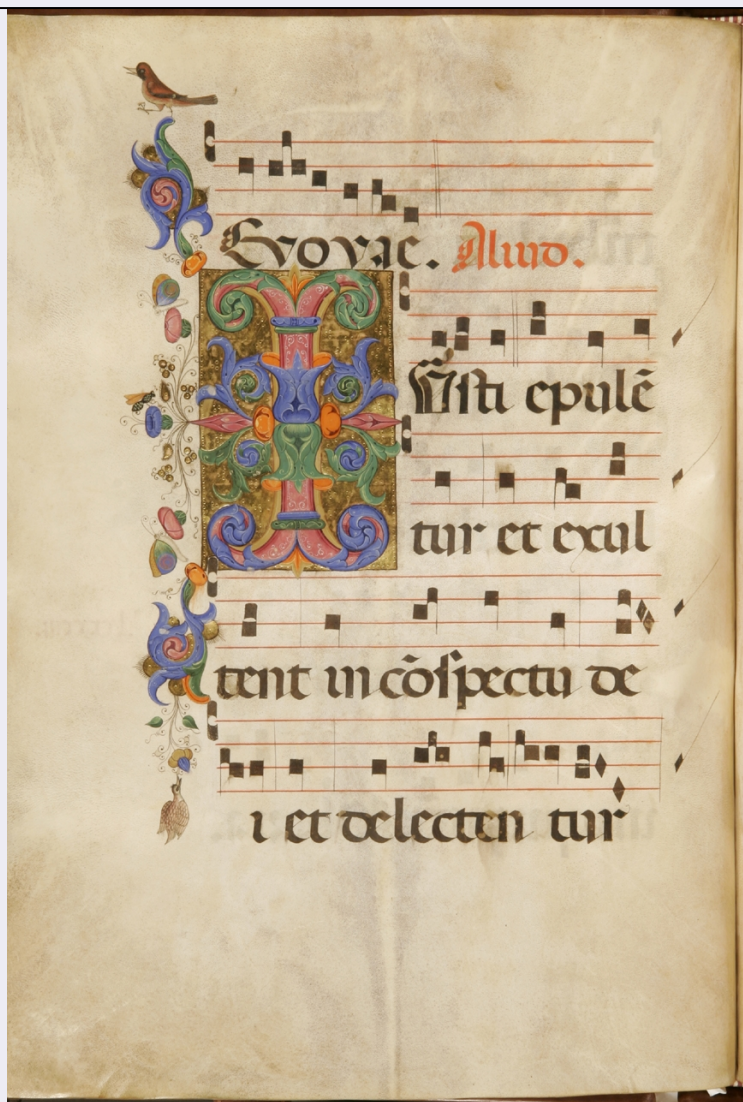 Evovae. Aliud.
IVsti epulē
tur et exul
tent in cōspectu de
i et delecten tur